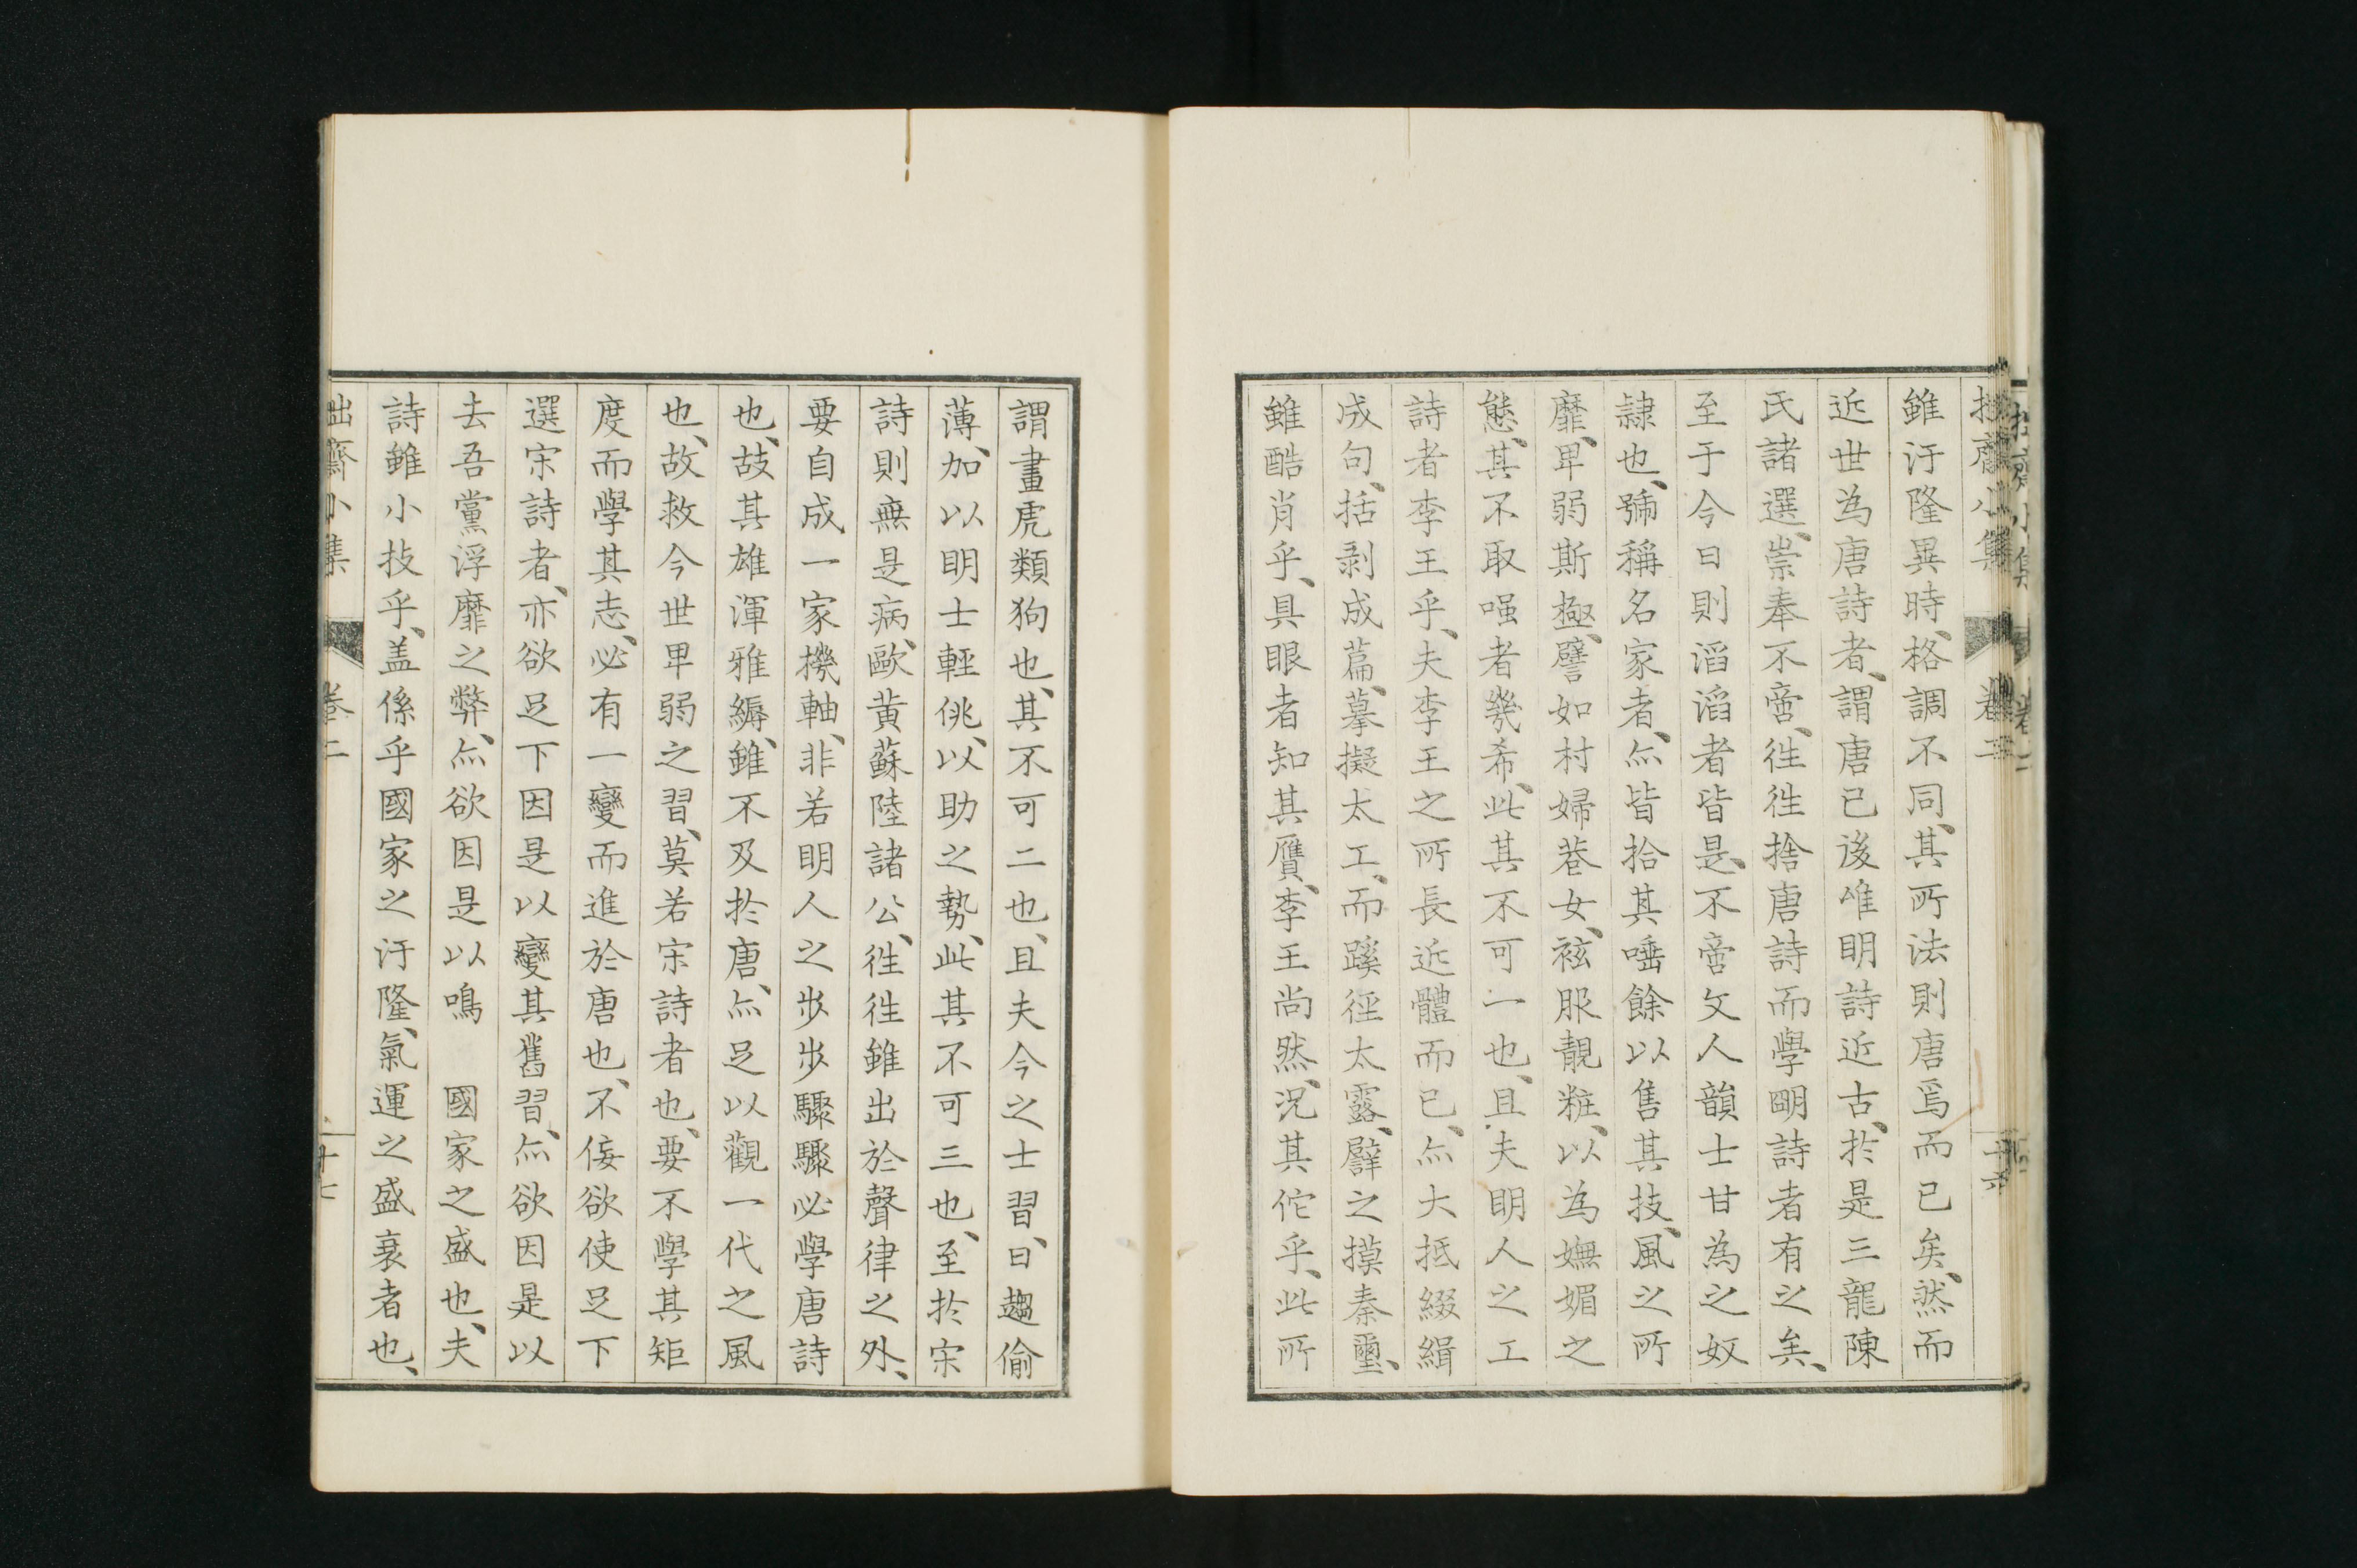 拙齋小集 卷二 十六
雖汙隆異時、格調不同、其所法則唐焉而已矣、然而
近世為唐詩者、謂唐已後唯明詩近古、於是三龍陳
氏諸選、崇奉不啻、徃徃捨唐詩而學朙詩者有之矣、
至于今日則滔滔者皆是、不啻文人韻士甘為之奴
隷也、號稱名家者、亦皆拾其唾餘以售其技、風之所
靡、卑弱斯極、譬如村婦巷女、袨服靚粧、以為嫵媚之
態、其不取嗤者幾希、此其不可一也、且夫明人之工
詩者李王乎、夫李王之所長近體而已、亦大抵綴緝
成句、括剥成篇、摹擬太工、而蹊徑太露、辟之摸秦璽、
雖酷肖乎、具眼者知其贋、李王尚然、况其佗乎、此所
謂畫虎類狗也、其不可二也、且夫今之士習、日趨偷
薄、加以明士輕佻、以助之勢、此其不可三也、至於宋
詩則無是病、歐黄蘇陸諸公、徃徃雖出於聲律之外、
要自成一家機軸、非若明人之步步驟驟必學唐詩
也、故其雄渾雅縟、雖不及於唐、亦足以觀一代之風
也、故救今世卑弱之習、莫若宋詩者也、要不學其矩
度而學其志、必有一變而進於唐也、不侫欲使足下
選宋詩者、亦欲足下因是以變其舊習、亦欲因是以
去吾黨浮靡之弊、亦欲因是以鳴　國家之盛也、夫
詩雖小技乎、盖係乎國家之汙隆、氣運之盛衰者也、
拙齋小集 卷二 十七